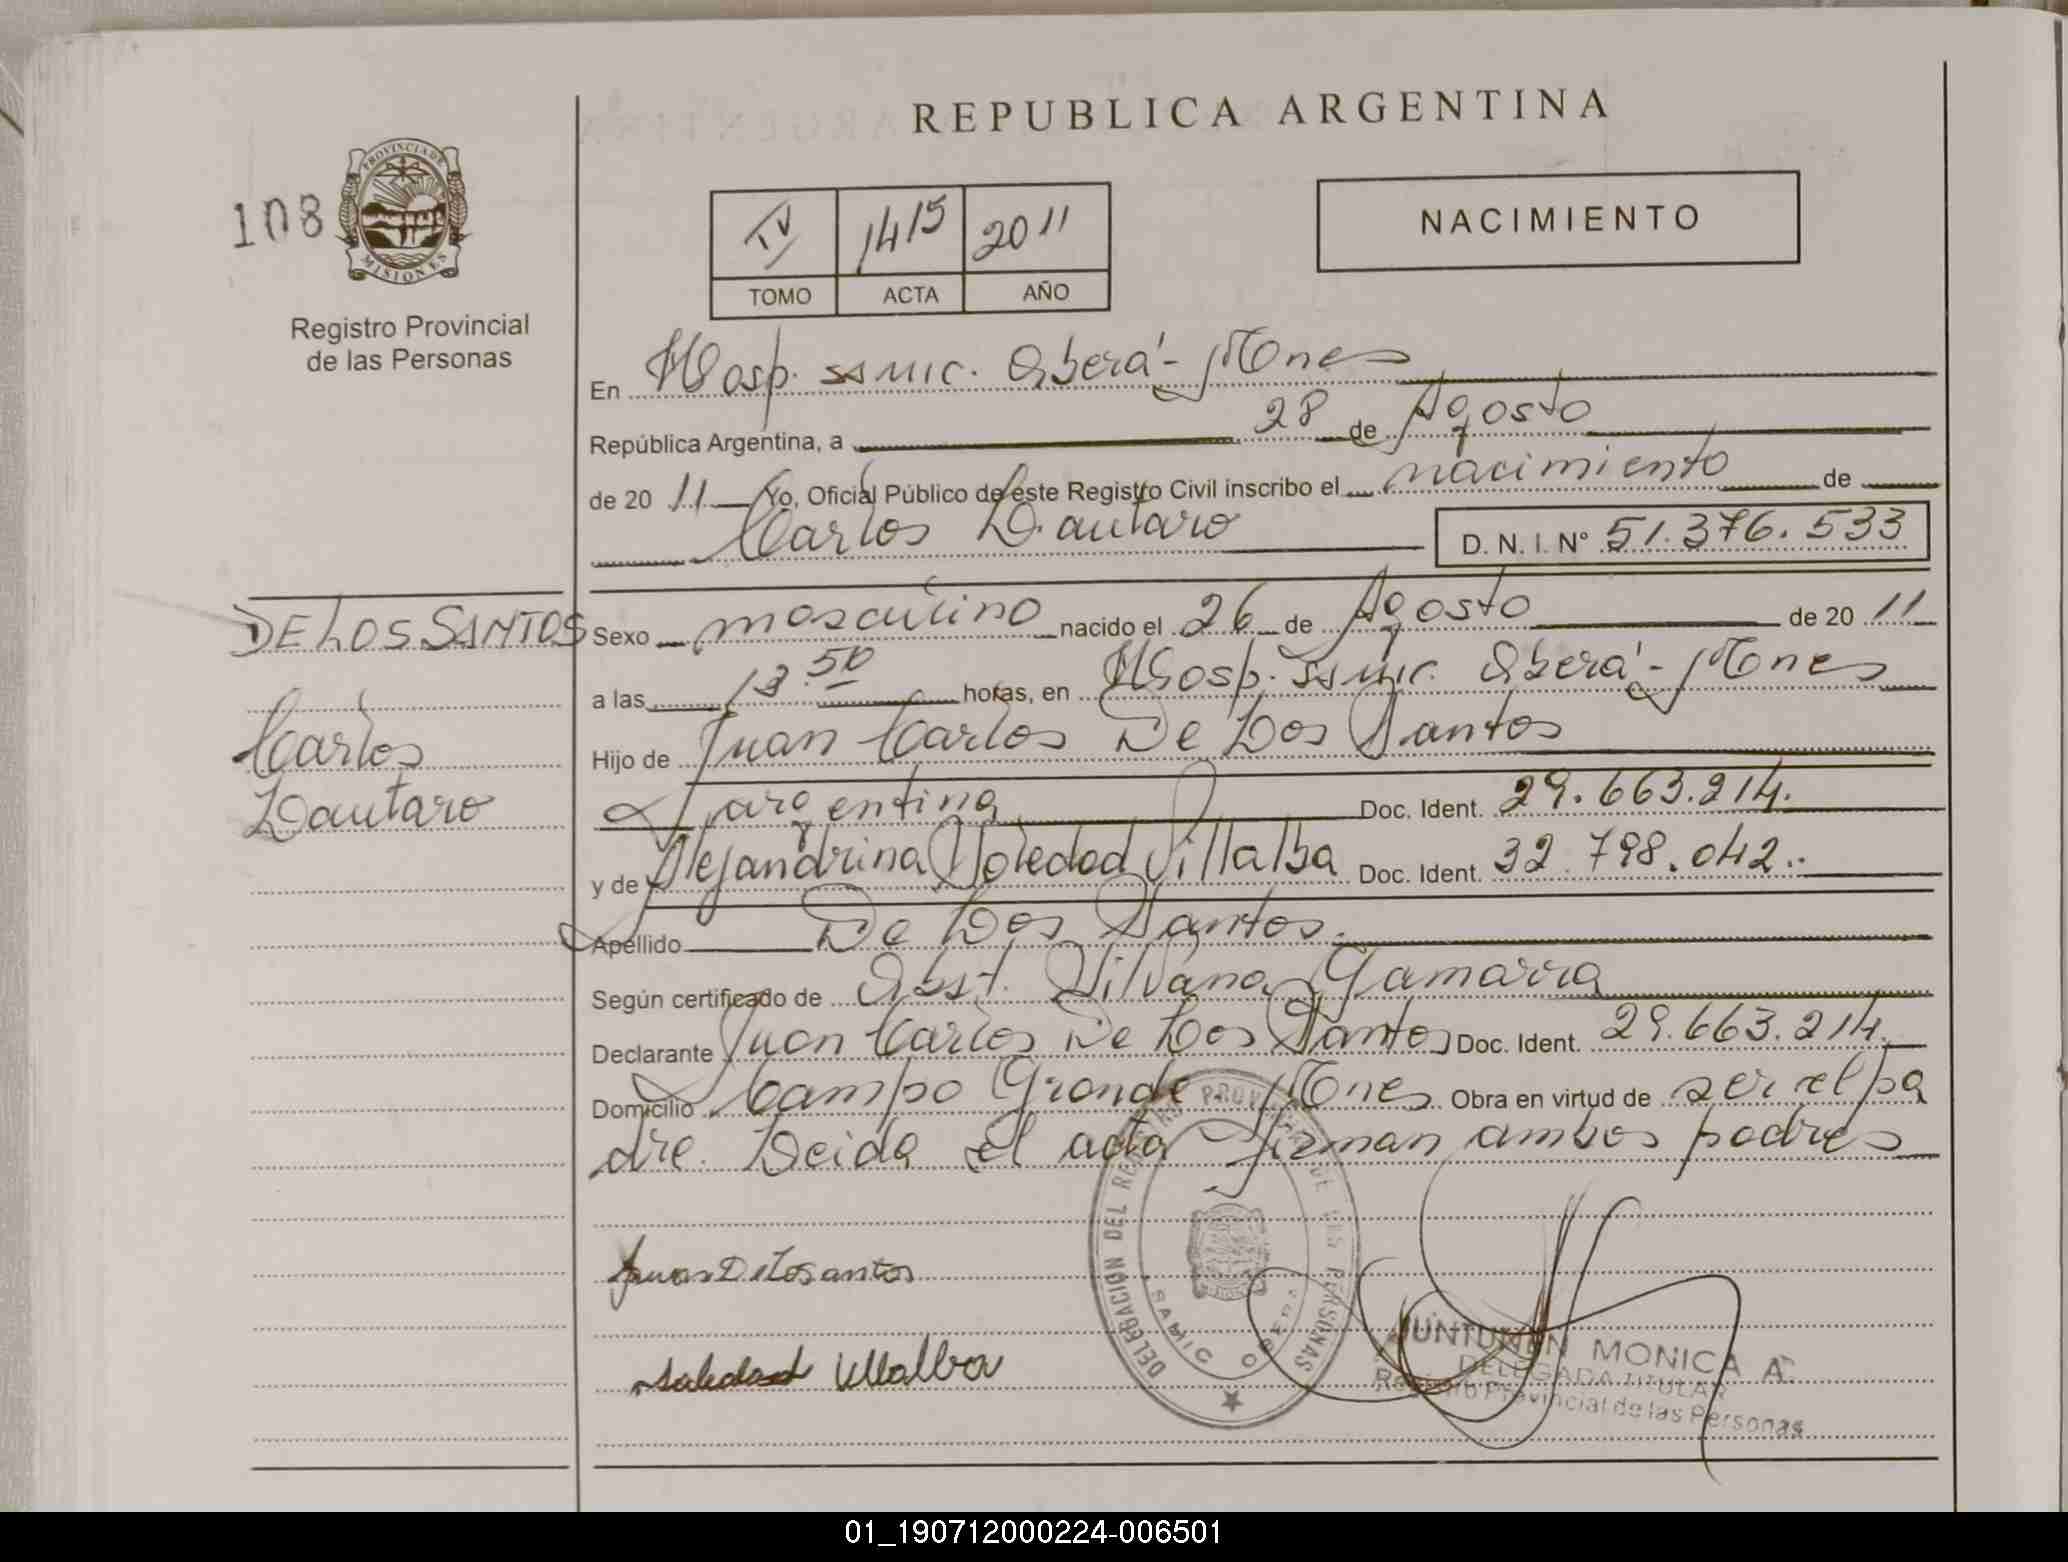 REPUBLICA ARGENTINA
108
PROVINCIA DE
MISIONES
Registro Provincial
de las Personas
IV 1415 2011
TOMO ACTA AÑO
NACIMIENTO
En Hosp. SAMIC. Oberá - Mnes
República Argentina, a 28 de Agosto
de 20 11 Yo, Oficial Público de este Registro Civil inscribo el nacimiento de
Carlos Lautaro D. N. I. Nº 51.376.533
DE LOS SANTOS
Carlos
Lautaro
Sexo masculino nacido el 26 de Agosto de 20 11
a las 13.50 horas, en Hosp. SAMIC. Oberá - Mnes
Hijo de Juan Carlos De Los Santos
argentina Doc. Ident. 29.663.214.
y de Alejandrina Soledad Villalba Doc. Ident. 32.798.042..
Apellido De Los Santos.
Según certificado de Obst. Silvana Gamarra
Declarante Juan Carlos De Los Santos Doc. Ident. 29.663.214.
Domicilio Campo Grande Mnes Obra en virtud de ser el pa
dre. Leida el acta firman ambos padres
DELEGACION DEL REGISTRO PROVINCIAL DE LAS PERSONAS
SAMIC OBERA
Juan De Los santos
Soledad Villalba
JUNTUNEN MONICA A.
DELEGADA TITULAR
Registro Provincial de las Personas
01_190712000224-006501